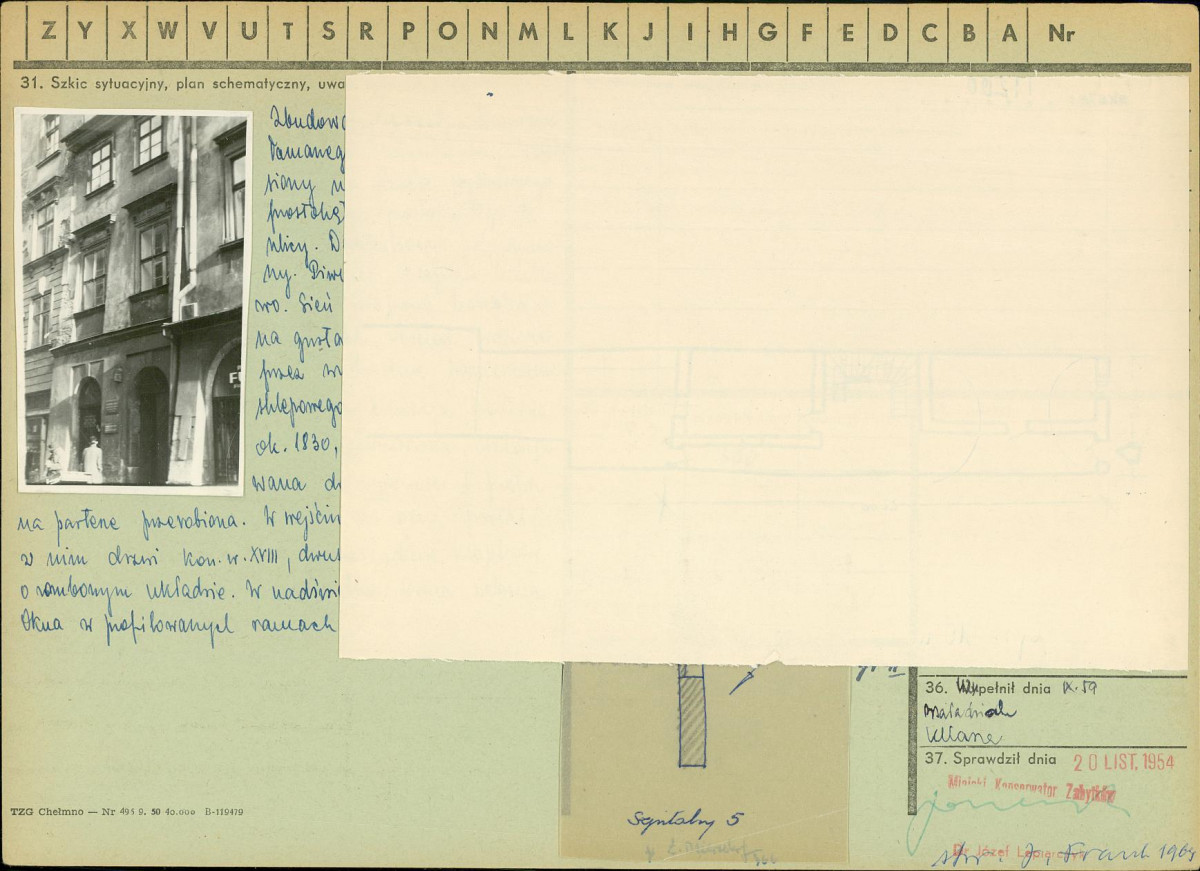 Z Y X W V U T S R P O N M L K J I H G F E D C B A Nr
31. Szkic sytuacyjny, plan schematyczny, uwa
Zbudowa
łamaneg
prostoką
ulicy. D
ny. Piw
wo. Sień
na gusto
przez w
sklepowego
ok. 1830,
wana d
na parterze przerobiona. W wejściu
w nim drzwi kon. w. XVIII, dwus
o rombowym układzie. W nadświe
Okna w profilowanych ramach
36. Wypełnił dnia IX.59
37. Sprawdził dnia 20 LIST. 1954
Miejski Konserwator Zabytków
Dr Józef
J. Frank 1964
Szpitalny 5
TZG Chełmno — Nr 495 9. 50 40.000 B-119479